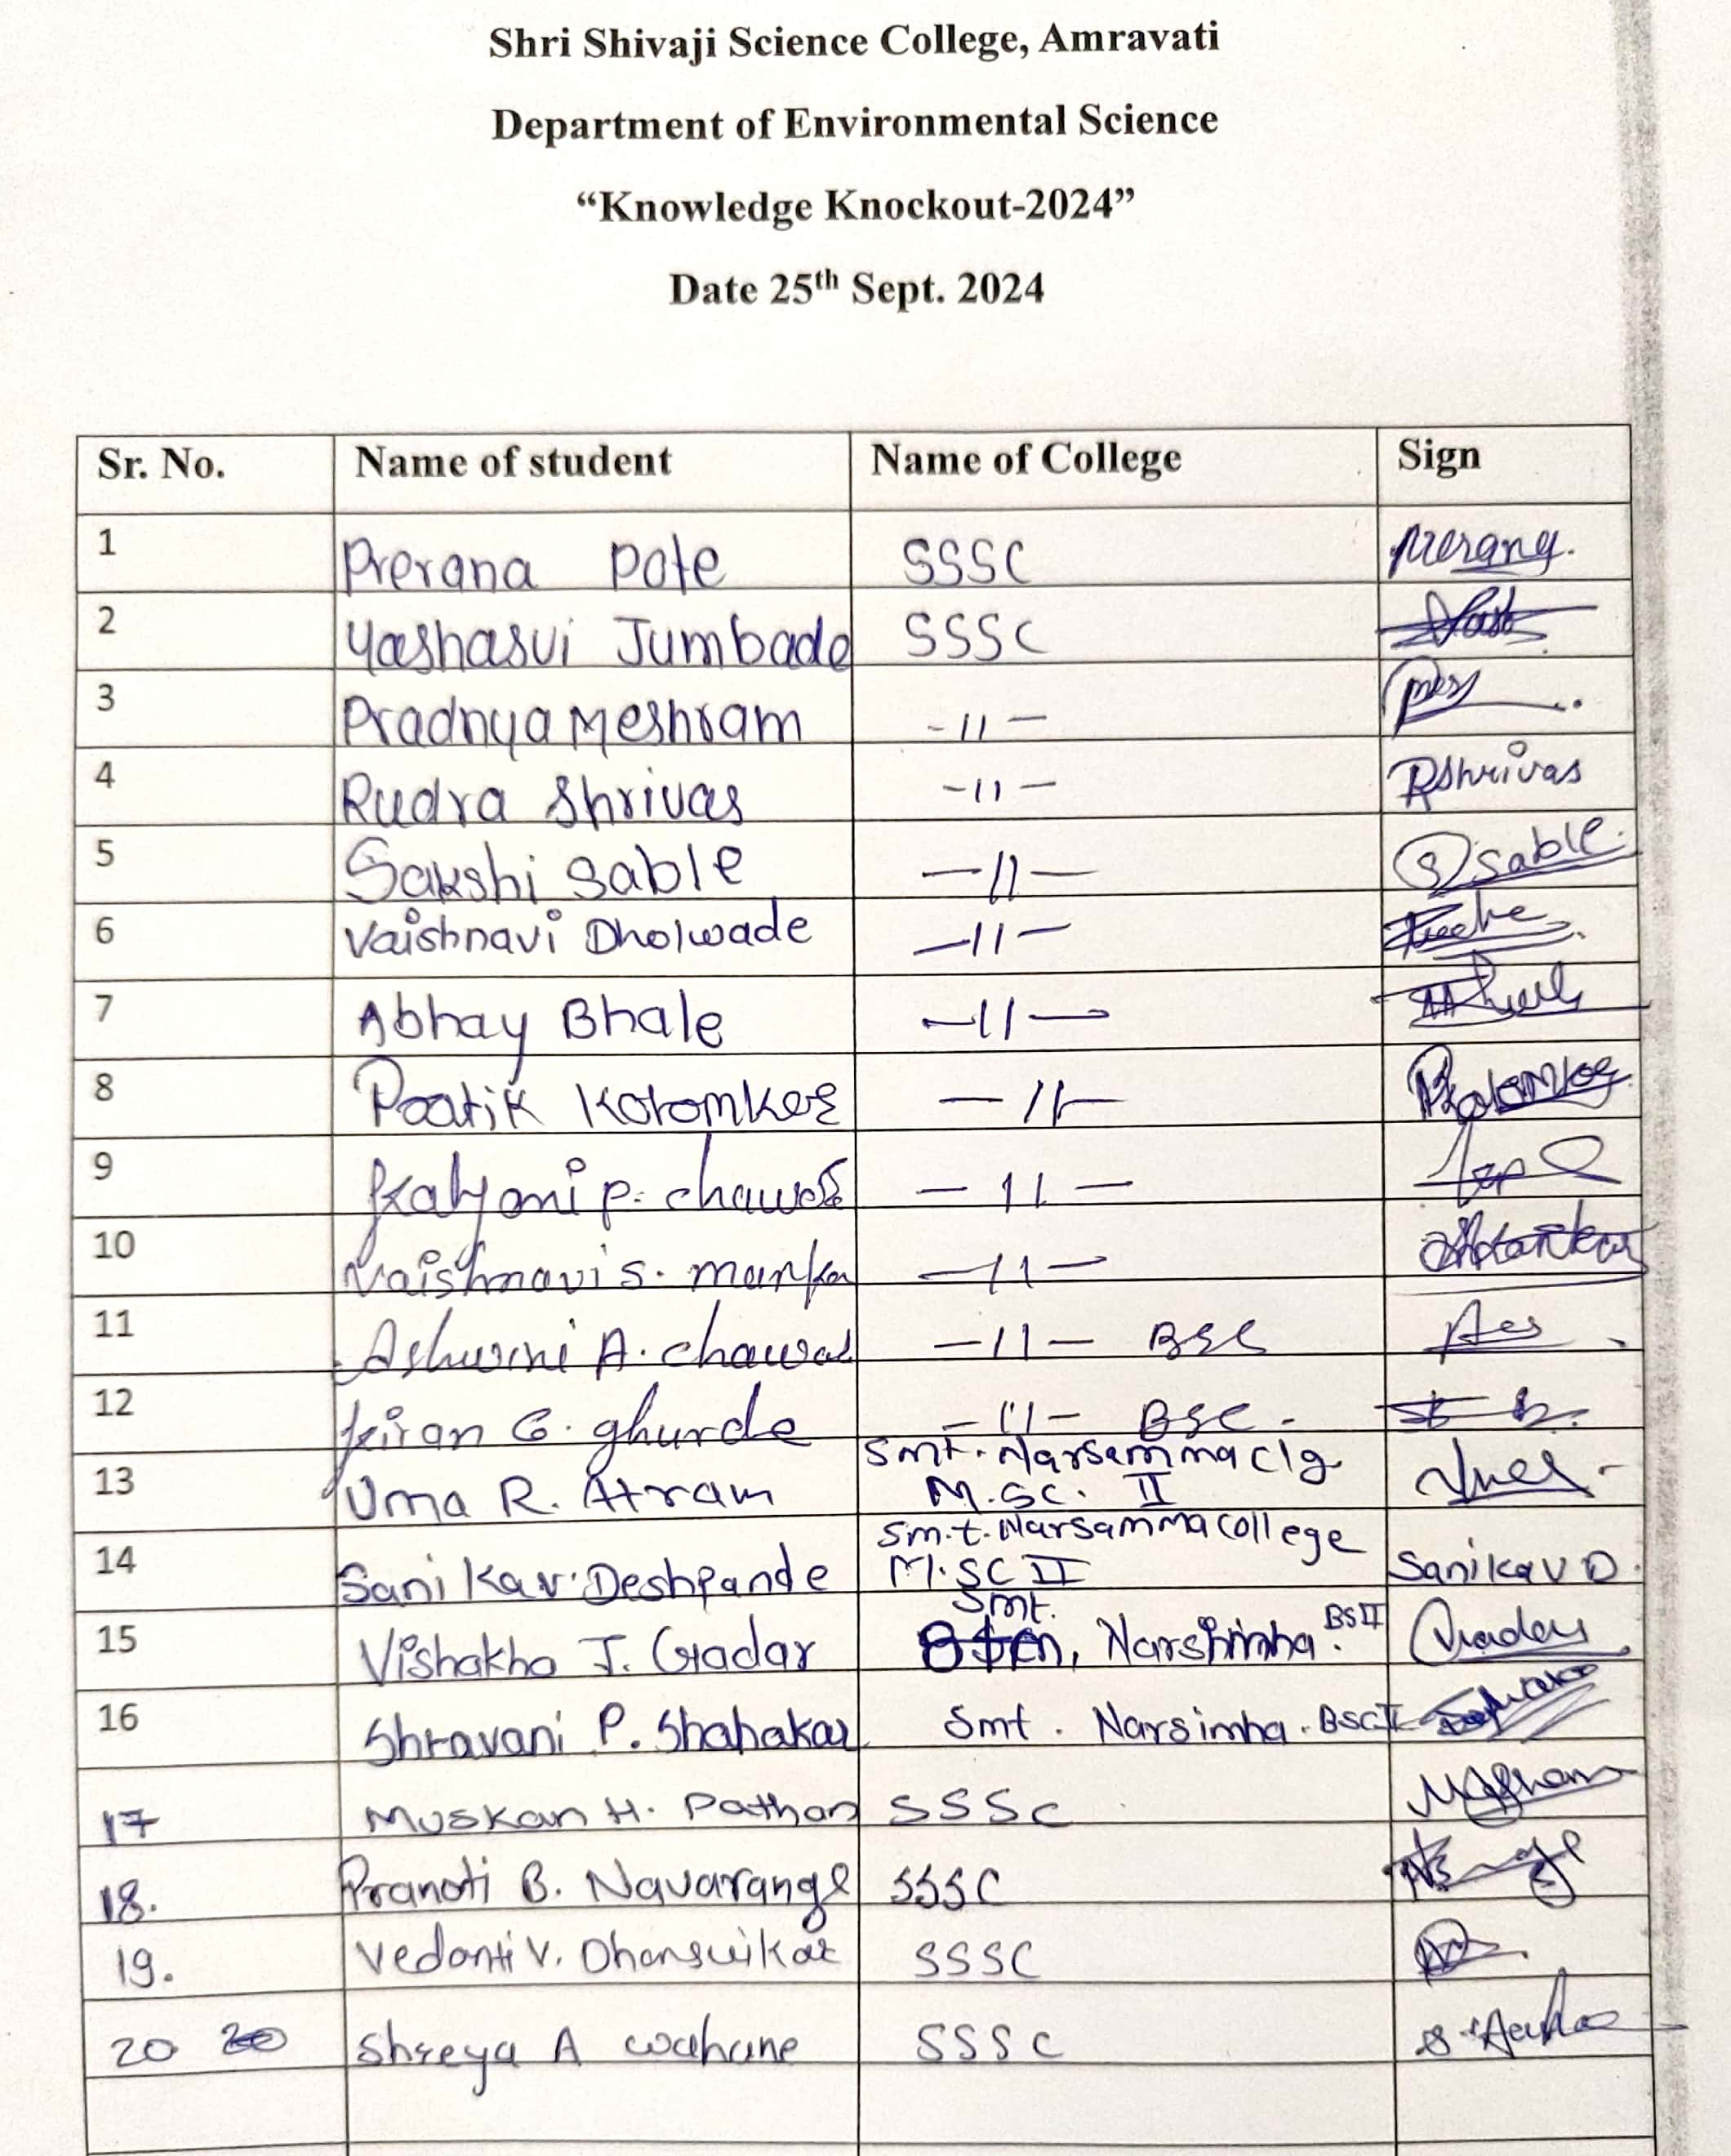 Shri Shivaji Science College, Amravati
Department of Environmental Science
“Knowledge Knockout-2024”
Date 25th Sept. 2024
Sr. No. Name of student Name of College Sign
1 Prerana Pote SSSC Prerana.
2 Yashasvi Jumbade SSSC
3 Pradnya Meshram -11-
4 Rudra Shrivas -11- RShrivas
5 Sakshi Sable -11- S Sable.
6 Vaishnavi Dholwade -11-
7 Abhay Bhale -11-
8 Pratik -11-
9 Kalyani P. -11-
10 Vaishnavi S. -11-
11 Ashwini A. -11- BSC
12 Kiran G. ghurde -11- BSC.
Smt. Narsamma Clg
13 Uma R. Atram M.SC. II
Smt. Narsamma College
14 Sanika V. Deshpande M.SC II Sanika V D.
Smt.
15 Vishakha J. Gadar Narsimha. BS II
16 Shravani P. Shahakar Smt. Narsimha. BSC I
17 Muskan H. Pathan SSSC
18. Pranoti B. Navarange SSSC
19. Vedanti V. SSSC
20 20 Shreya A wahane SSSC